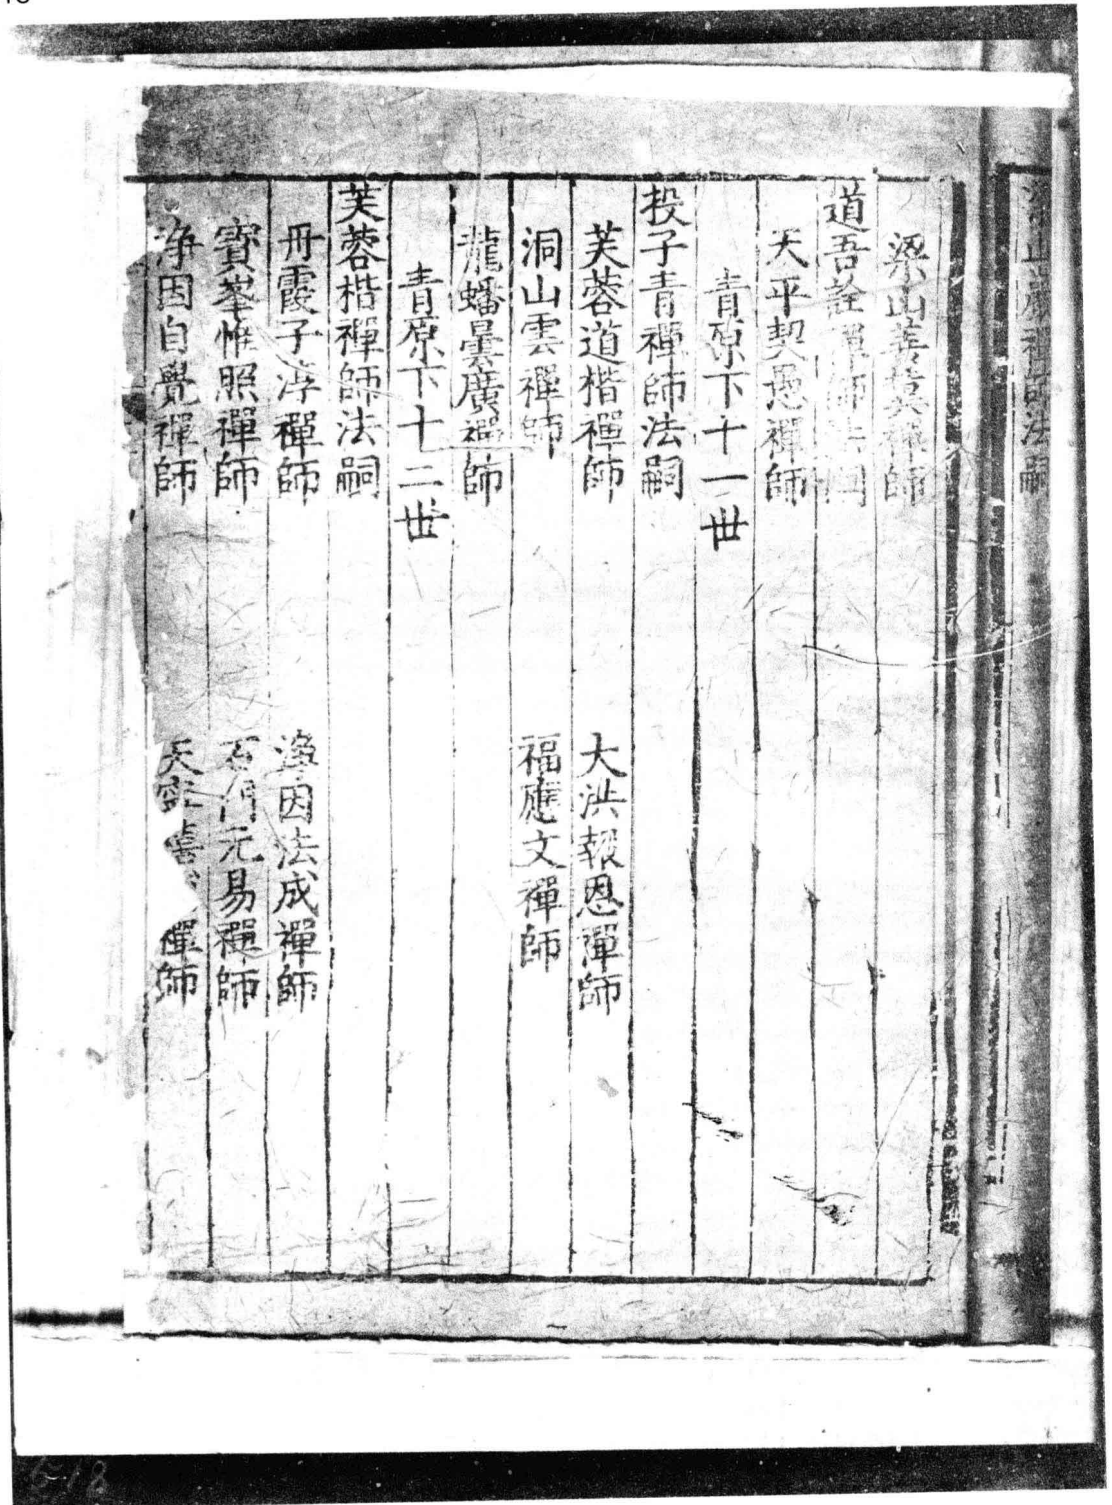 山巖禪師法嗣
梁山善冀禪師
道吾詮禪師法嗣
天平契愚禪師
青原下十一世
投子青禪師法嗣
芙蓉道楷禪師 大洪報恩禪師
洞山雲禪師 福應文禪師
龍蟠曇廣禪師
青原下十二世
芙蓉楷禪師法嗣
丹霞子淳禪師 淨因法成禪師
寶峯惟照禪師 石門元易禪師
淨因自覺禪師 天寧禧禪師
518